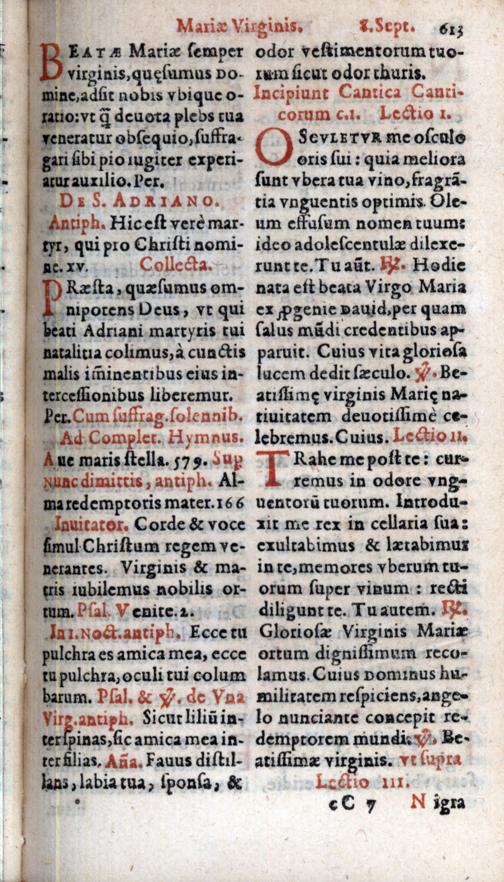 Mariæ Virginis. 8. Sept. 613
BEATÆ Mariæ semper
virginis, quęsumus Do-
mine, adsit nobis vbique o-
ratio: vt q̃ deuota plebs tua
veneratur obsequio, suffra-
gari sibi pio iugiter experi-
atur auxilio. Per.
DE S. ADRIANO.
Antiph. Hic est verè mar-
tyr, qui pro Christi nomi-
ne. xv. Collecta.
PRæsta, quæsumus om-
nipotens Deus, vt qui
beati Adriani martyris tui
natalitia colimus, à cunctis
malis im̃inentibus eius in-
tercessionibus liberemur.
Per. Cum suffrag. solennib.
Ad Complet. Hymnus.
Aue maris stella. 579. Sup
Nunc dimittis, antiph. Al-
ma redemptoris mater. 166
Inuitator. Corde & voce
simul Christum regem ve-
nerantes. Virginis & ma-
tris iubilemus nobilis or-
tum. Psal. Venite. 2.
In 1. Noct. antiph. Ecce tu
pulchra es amica mea, ecce
tu pulchra, oculi tui colum
barum. Psal. & ℣. de Vna
Virg. antiph. Sicut liliũ in-
ter spinas, sic amica mea in-
ter filias. Aña. Fauus distil-
lans, labia tua, sponsa, &
odor vestimentorum tuo-
rum sicut odor thuris.
Incipiunt Cantica Canti-
corum c. 1. Lectio 1.
OSCVLETVR me osculo
oris sui: quia meliora
sunt vbera tua vino, fragrã-
tia vnguentis optimis. Ole-
um effusum nomen tuum:
ideo adolescentulæ dilexe-
runt te. Tu aũt. ℟. Hodie
nata est beata Virgo Maria
ex ꝓgenie Dauid, per quam
salus mũdi credentibus ap-
paruit. Cuius vita gloriosa
lucem dedit sæculo. ℣. Be-
atissimę virginis Marię na-
tiuitatem deuotissimè ce-
lebremus. Cuius. Lectio 11.
TRahe me post te: cur-
remus in odore vng-
uentorũ tuorum. Introdu-
xit me rex in cellaria sua:
exultabimus & lætabimur
in te, memores vberum tu-
orum super vinum: recti
diligunt te. Tu autem. ℟.
Gloriosæ Virginis Mariæ
ortum dignissimum reco-
lamus. Cuius Dominus hu-
militatem respiciens, ange-
lo nunciante concepit re-
demptorem mundi. ℣. Be-
atissimæ virginis. vt supra
Lectio III.
cC 7 Nigra